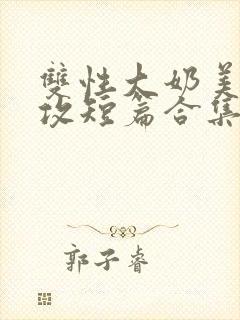 雙性大奶美
攻短篇合集
郭子睿